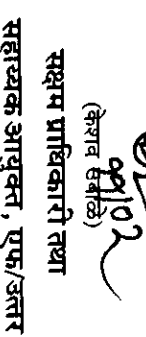 ११/०२
(केशव उबाळे)
सक्षम प्राधिकारी तथा
सहाय्यक आयुक्त, एफ/उत्तर